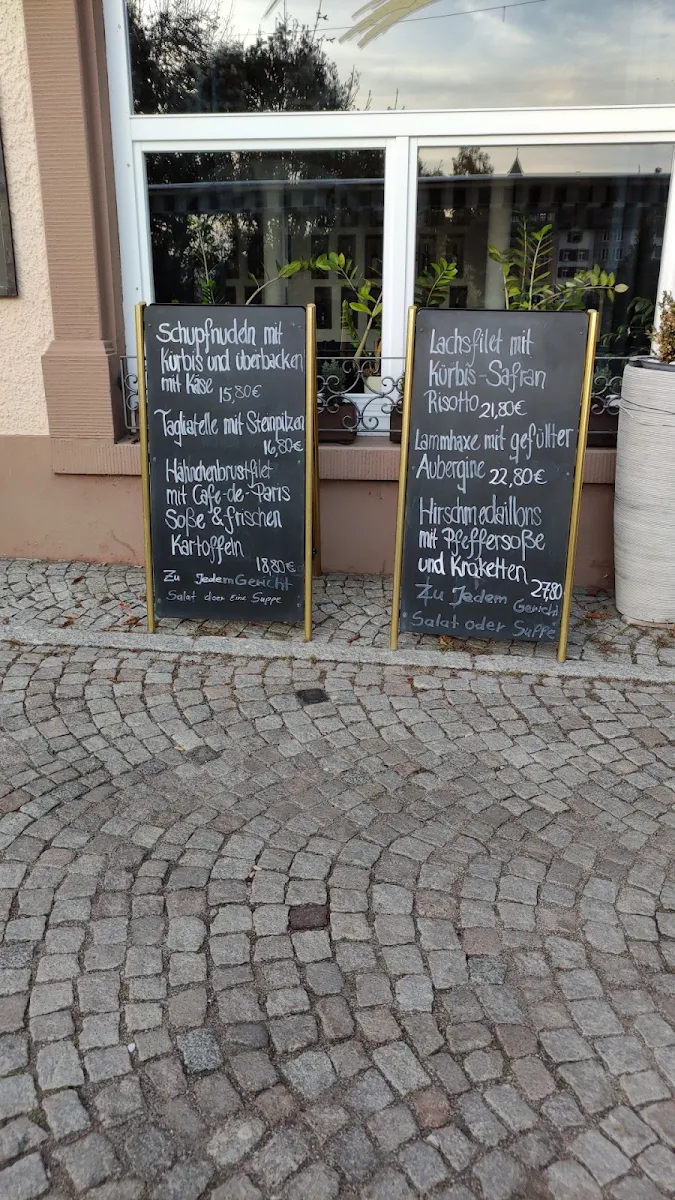 Schupfnudeln mit
Kürbis und überbacken
mit Käse 15,80€
Tagliatelle mit Steinpilzen
16,80€
Hähnchenbrustfilet
mit Cafe-de-Paris
Soße & frischen
Kartoffeln
18,80€
Zu Jedem Gericht
Salat doer Eine Suppe
Lachsfilet mit
Kürbis-Safran
Risotto 21,80€
Lammhaxe mit gefüllter
Aubergine 22,80€
Hirschmedaillons
mit Pfeffersoße
und Kroketten
27,80
Zu Jedem Gericht
Salat oder Suppe